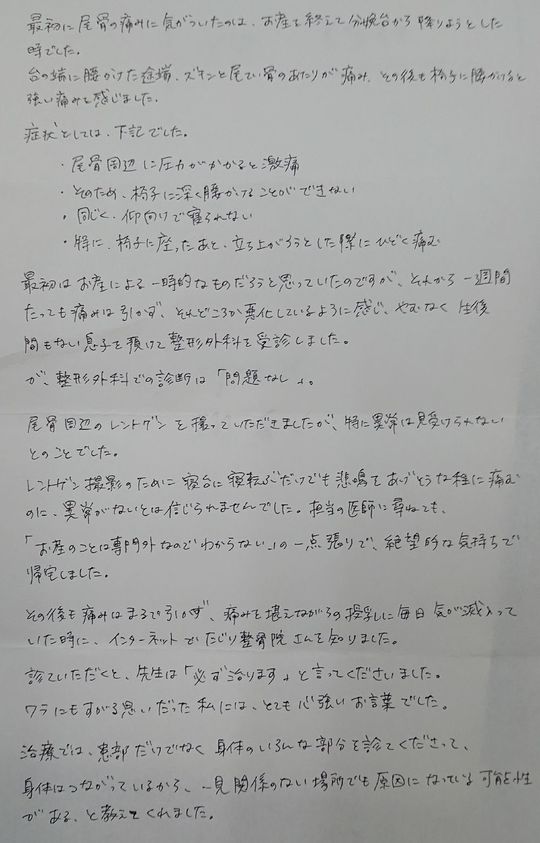 最初に尾骨の痛みに気がついたのは、お産を終えて分娩台から降りようとした
時でした。
台の端に腰かけた途端、ズキンと尾てい骨のあたりが痛み、その後も椅子に腰かけると
強い痛みを感じました。
症状としては、下記でした。
・尾骨周辺に圧力がかかると激痛
・そのため、椅子に深く腰かけることができない
・同じく、仰向けで寝られない
・特に、椅子に座ったあと、立ち上がろうとした際にひどく痛む
最初はお産による一時的なものだろうと思っていたのですが、それから一週間
たっても痛みは引かず、それどころか悪化しているように感じ、やむなく生後
間もない息子を預けて整形外科を受診しました。
が、整形外科での診断は「問題なし」。
尾骨周辺のレントゲンを撮っていただきましたが、特に異常は見受けられない
とのことでした。
レントゲン撮影のために寝台に寝転ぶだけでも悲鳴をあげそうな程に痛む
のに、異常がないとは信じられませんでした。担当の医師に尋ねても、
「お産のことは専門外なのでわからない」の一点張りで、絶望的な気持ちで
帰宅しました。
その後も痛みはまるで引かず、痛みを堪えながらの授乳に毎日気が滅入って
いた時に、インターネットでたじり整骨院さんを知りました。
診ていただくと、先生は「必ず治ります」と言ってくださいました。
ワラにもすがる思いだった私には、とても心強いお言葉でした。
治療では、患部だけでなく身体のいろんな部分を診てくださって、
身体はつながっているから、一見関係のない場所でも原因になっている可能性
がある、と教えてくれました。